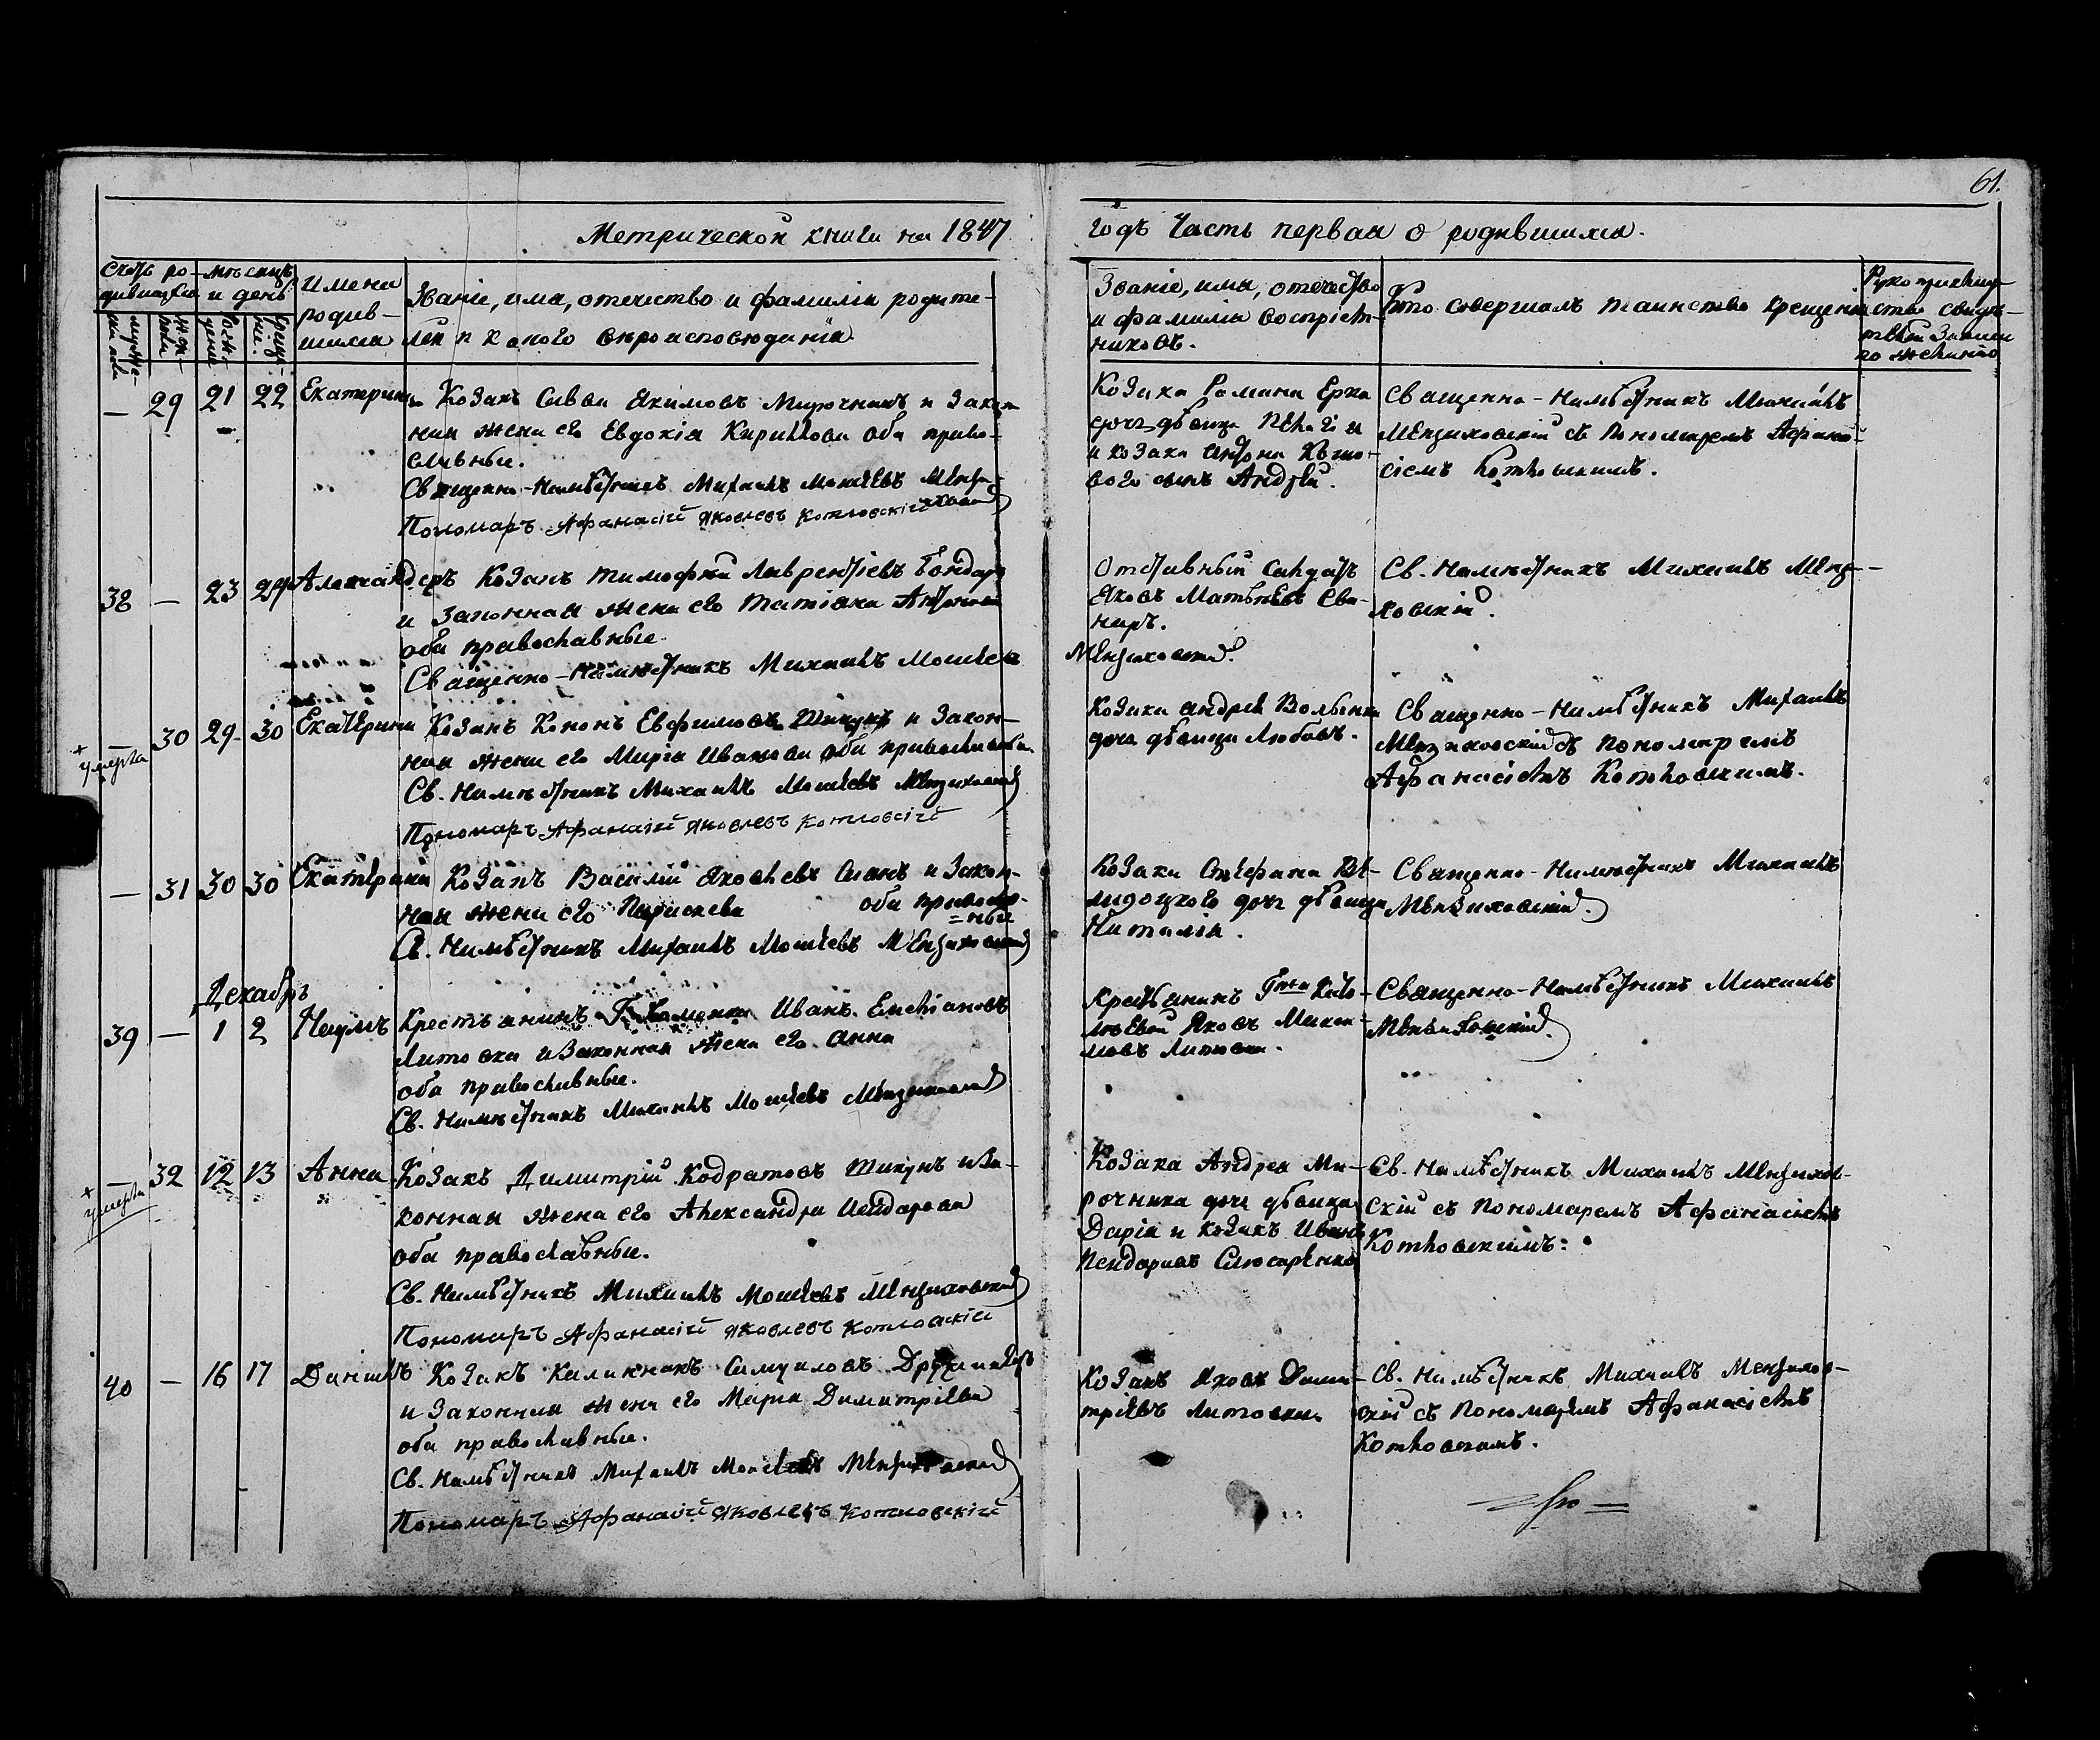 61.
Метрической книги на 1847
годъ Часть первая о родившихся.
Счетъ ро-
дившихся
мѣсяцъ
и день
Имена
родив-
шихся
Званіе, имя, отечество и фамилія родите-
лей и какого вѣроисповѣданія
Званіе, имя, отечество
и фамилія воспріем-
никовъ.
Кто совершалъ таинство крещенія
— 29 21 22 Екатерина
Козакъ Савва Якимовъ Мирочникъ и закон
ная жена его Евдокія Кирилова оба право-
славные.
Священно-Намѣстникъ Михаилъ Моисеевъ
Пономарь Афанасій Яковлевъ Котловскій
Козака Романа
дочь дѣвица Пелагія
и козака
сынъ Андрей.
Священно-Намѣстникъ Михаилъ
Мензиховскій съ Пономаремъ Афана-
сіемъ Котловскимъ.
38 — 23 24 Александеръ
Козакъ Тимофей Лаврентіевъ Бондарь
и Законная жена его Татіана
оба православные.
Священно-Намѣстникъ Михаилъ Моисеев
Отставный
Яковъ Матвѣевъ
Мензиховскій.
Св. Намѣстникъ Михаилъ Менз-
ховскій.
+ умерла
— 30 29 30 Екатерина
Козакъ Кононъ Евфимовъ Шикунъ и Закон-
ная жена его Марія Иванова оба православн.
Св. Намѣстникъ Михаилъ Моисеевъ Мензиховскій
Пономарь Афанасій Яковлевъ Котловсій
Козака Андрея
дочь дѣвица Любовь.
Священно-Намѣстникъ Михаилъ
Мензиховскій съ Пономаремъ
Афанасіемъ Котловскимъ.
— 31 30 30 Екатерина
Козакъ Василій Яковлевъ и Закон-
ная жена его Параскева оба православ-
=ные
Св. Намѣстникъ Михаилъ Моисеевъ Мензиховскій
Козака Стефана
дочь дѣвица
Наталія.
Священно-Намѣстникъ Михаилъ
Мензиховскій.
Декабрь
39 — 1 2 Наумъ
Крестьянинъ Иванъ Емельяновъ
Литовка и Законная жена его Анна
оба православные.
Св. Намѣстникъ Михаилъ Моисеевъ Мензиховскій
Крестьянинъ
Яковъ
Литовка.
Священно-Намѣстникъ Михаилъ
Мензиховскій.
+ умерла
— 32 12 13 Анна
Козакъ Димитрій Кодратовъ Шикунъ и За-
конная жена его Александра
оба православные.
Св. Намѣстникъ Михаилъ Моисеевъ Мензиховскій
Пономарь Афанасій Яковлевъ Котловскій
Козака Андрея Ми-
рочника дочь дѣвица
Дарія и козакъ Иванъ
Слюсаренко
Св. Намѣстникъ Михаилъ Мензихов-
скій съ Пономаремъ Афанасіемъ
Котловскимъ:
40 — 16 17 Даніилъ
Козакъ Каленикъ Самуиловъ
и Законная жена его Марія Димитріева
оба православные.
Св. Намѣстникъ Михаилъ Моисеевъ Мензиховскій
Пономарь Афанасій Яковлевъ Котловскій
Козакъ Яковъ Дими-
тріевъ Литовка.
Св. Намѣстникъ Михаилъ Мензихов-
скій съ Пономаремъ Афанасіемъ
Котловскимъ.